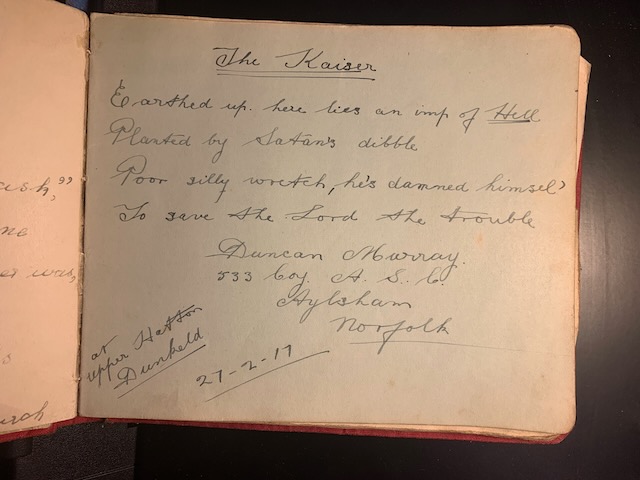 The Kaiser
Earthed up. here lies an imp of Hell
Planted by Satan's dibble
Poor silly wretch, he's damned himsel'
To save the Lord the trouble
Duncan Murray.
533 Coy. A. S. C.
Aylsham
Norfolk
at
upper Hatton
Dunkeld
27-2-17
ne